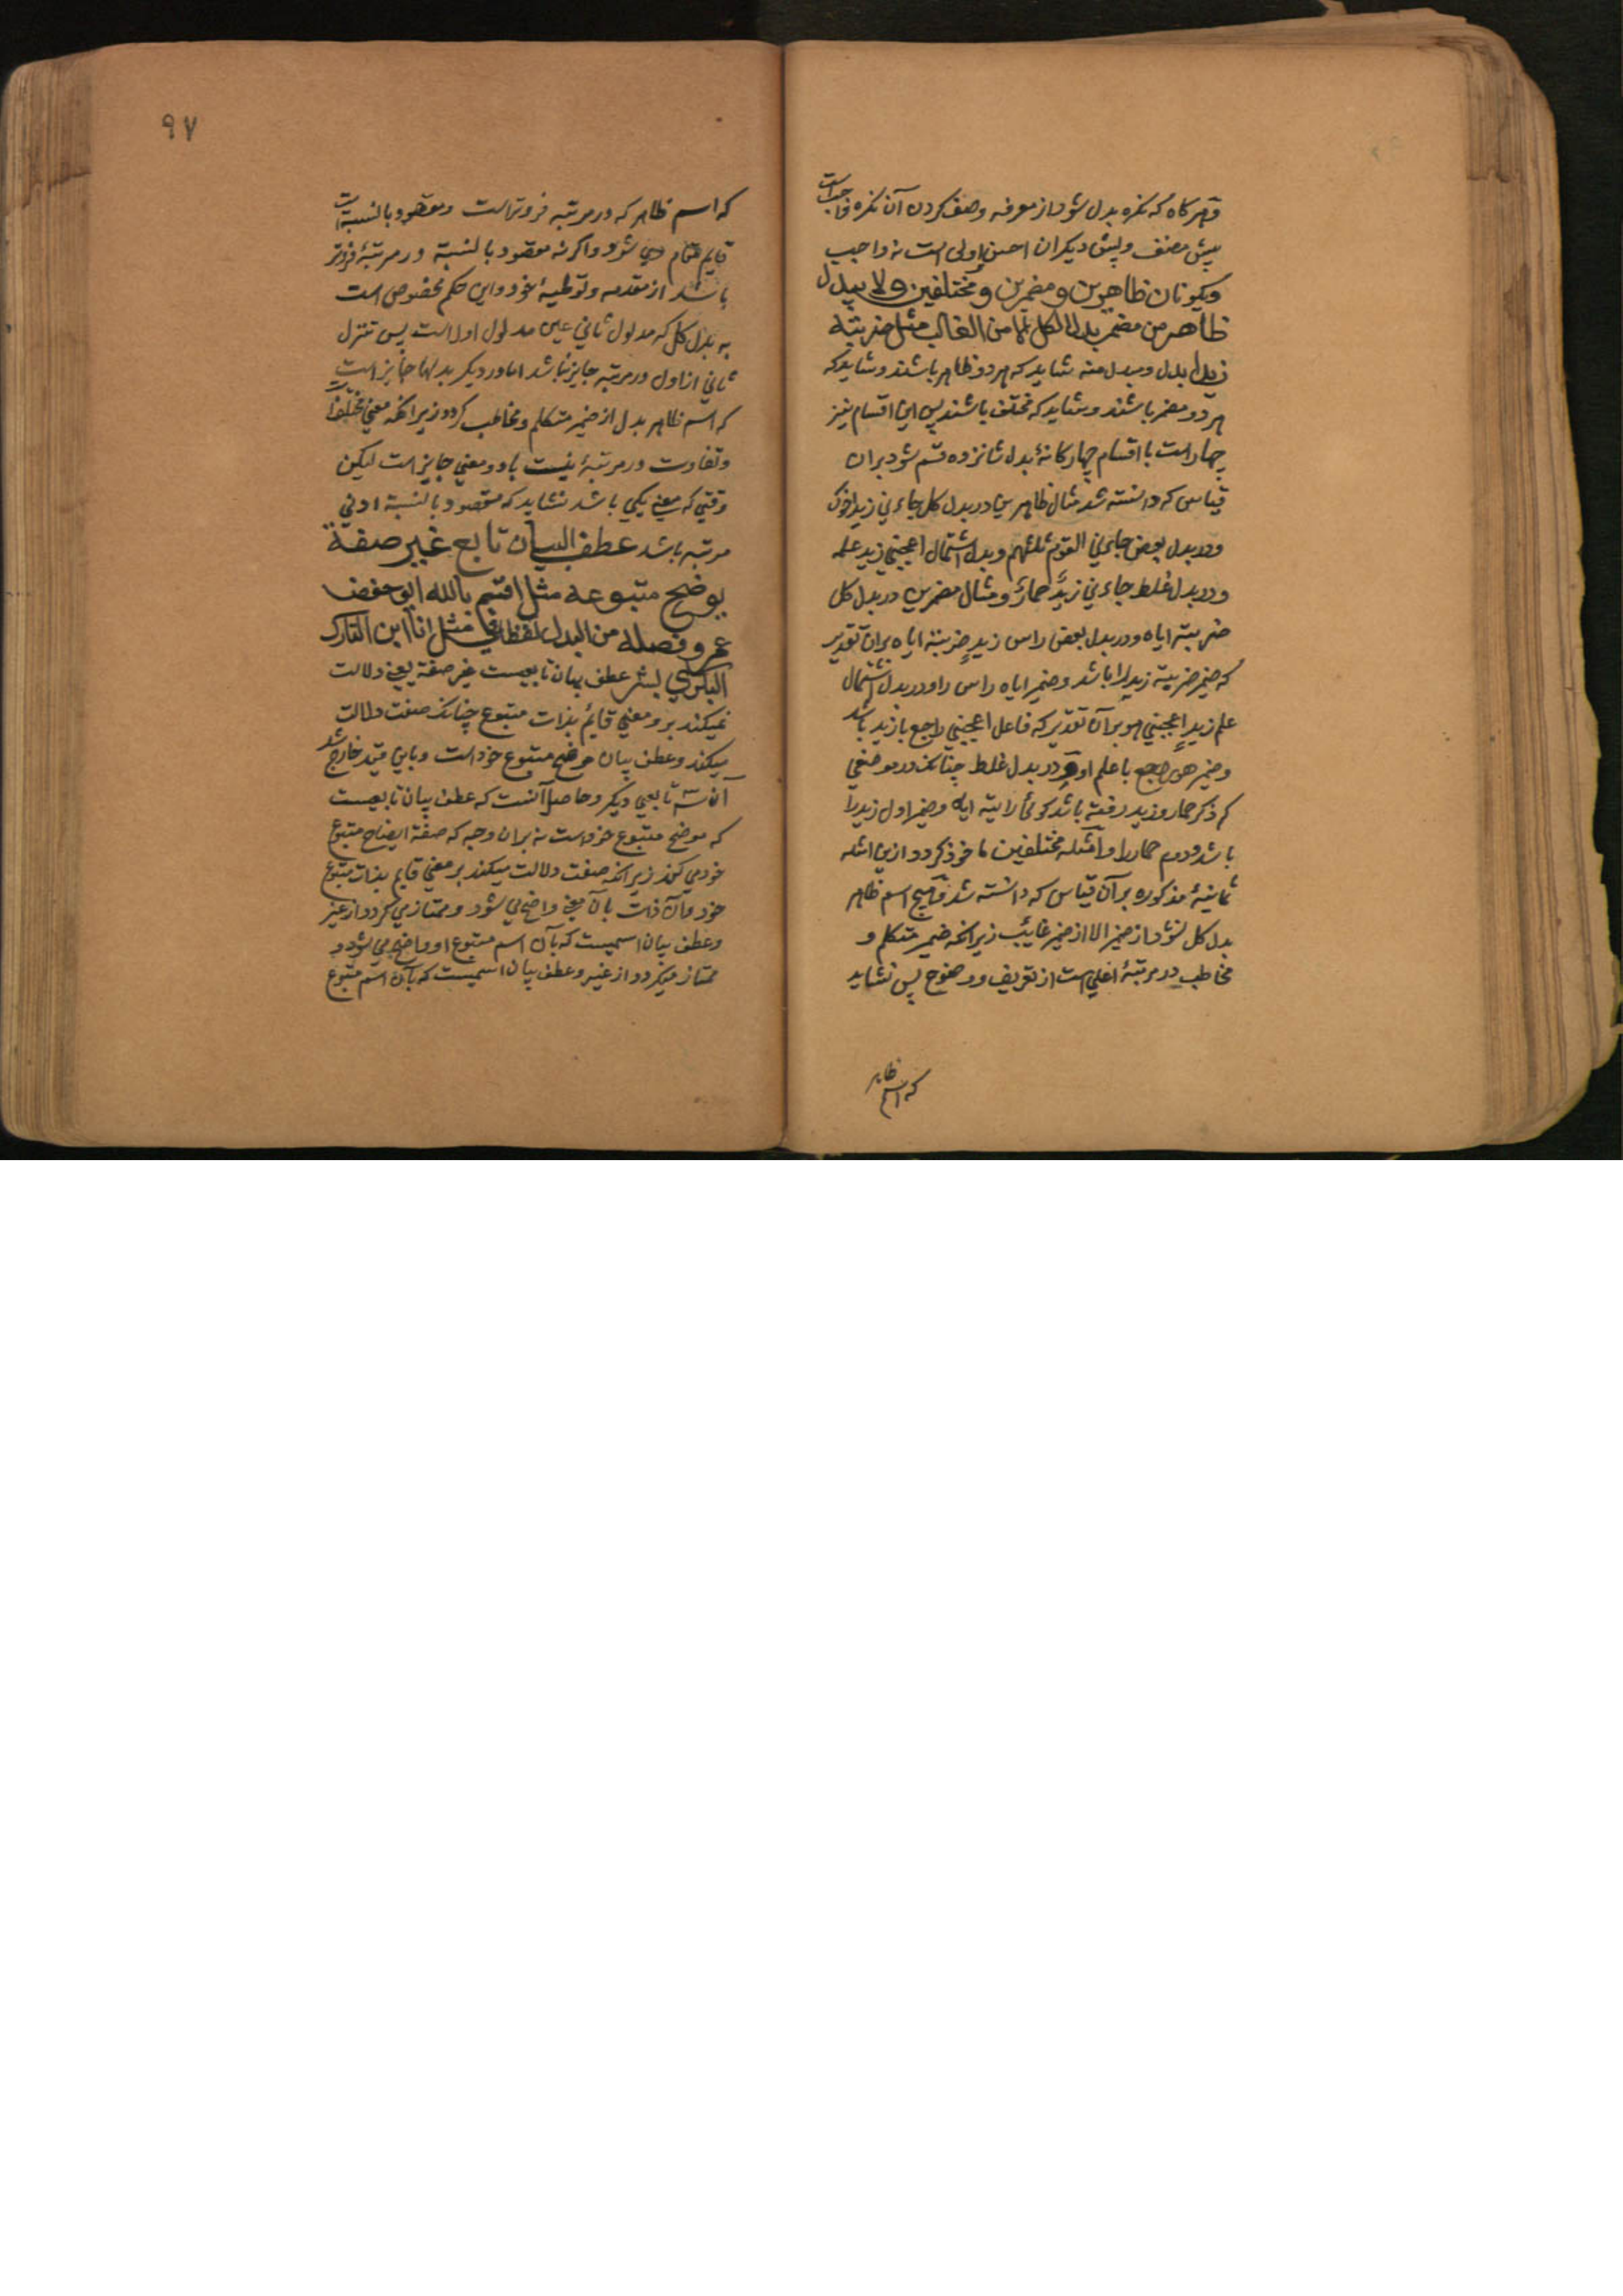 و هر کاه که نکره بدل شود از معرفه وصف کردن آن نکره واجبست
پیش مصنف و پیش دیکران احسن و اولی است نه واجب
ویکونان ظاهرین و مضمرین و مختلفین ولا یبدل
ظاهر من مضمر بدل الکل الا من الغائب مثل ضربته
زیدا بدل و مبدل منه شاید که هر دو ظاهر باشند و شاید که
هر دو مضمر باشند و شاید که مختلف باشند پس این اقسام نیز
چهار است با اقسام چهارکانهٔ بدل شانزده قسم شود بران
قیاس که دانسته شد مثال ظاهرین در بدل کل جاءنی زید اخوک
و در بدل بعض جاءنی القوم ثلثهم و بدل اشتمال اعجبنی زید علمه
و در بدل غلط جاءنی زید حمار و مثال مضمرین در بدل کل
ضربته ایاه و در بدل بعض راس زید ضربته ایاه بران تقدیر
که ضمیر ضربته زید را باشد و ضمیر ایاه راس را و در بدل اشتمال
علم زید اعجبنی هو بر آن تقدیر که فاعل اعجبنی راجع با زید باشد
و ضمیر هو راجع با علم او و در بدل غلط چنانکه در موضعی
که ذکر حمار و زید رفته باشد کوئی رایته ایاه و ضمیر اول زید را
باشد و دوم حمار را و امثله مختلفین ماخوذ کردد ازین امثله
ثمانیهٔ مذکوره بر آن قیاس که دانسته شد و هیچ اسم ظاهر
بدل کل نشود از ضمیر الا از ضمیر غایب زیرا که ضمیر متکلم و
مخاطب در مرتبهٔ اعلی است از تعریف و وضوح پس نشاید
که اسم ظاهر
۹۷
که اسم ظاهر که در مرتبه فروتر است و مقصود بالنسبة است
قایم مقام وی شود و اکر نه مقصود بالنسبة در مرتبهٔ فروتر
باشد از مقدمه و توطیهٔ خود و این حکم مخصوص است
به بدل کل که مدلول ثانی عین مدلول اول است پس تنزل
ثانی از اول در مرتبه جایز نباشد اما در دیکر بدلها جایز است
که اسم ظاهر بدل از ضمیر متکلم و مخاطب کردد زیرا که معنی مختلف است
و تفاوت در مرتبهٔ بنسبت با دو معنی جایز است لیکن
وقتی که معنی یکی باشد نشاید که مقصود بالنسبة ادنی
مرتبه باشد عطف البیان تابع غیر صفة
یوضح متبوعه مثل اقسم بالله ابو حفص
عمر وفصله من البدل لفظا فی مثل انا ابن التارک
البکری بشر عطف بیان تابعیست غیر صفة یعنی دلالت
نمیکند بر معنی قائم بذات متبوع چنانکه صفت دلالت
میکند و عطف بیان موضح متبوع خود است و باین قید خارج شد
آن سه تابعی دیکر و حاصل آنست که عطف بیان تابعیست
که موضح متبوع خود است نه بران وجه که صفة ایضاح متبوع
خود می کند زیرا که صفت دلالت میکند بر معنی قایم بذات متبوع
خود و آن ذات بآن معنی واضح می شود و ممتاز می کردد از غیر
و عطف بیان اسمیست که بآن اسم متبوع او واضح می شود و
ممتاز میکردد از غیر و عطف بیان اسمیست که بآن اسم متبوع